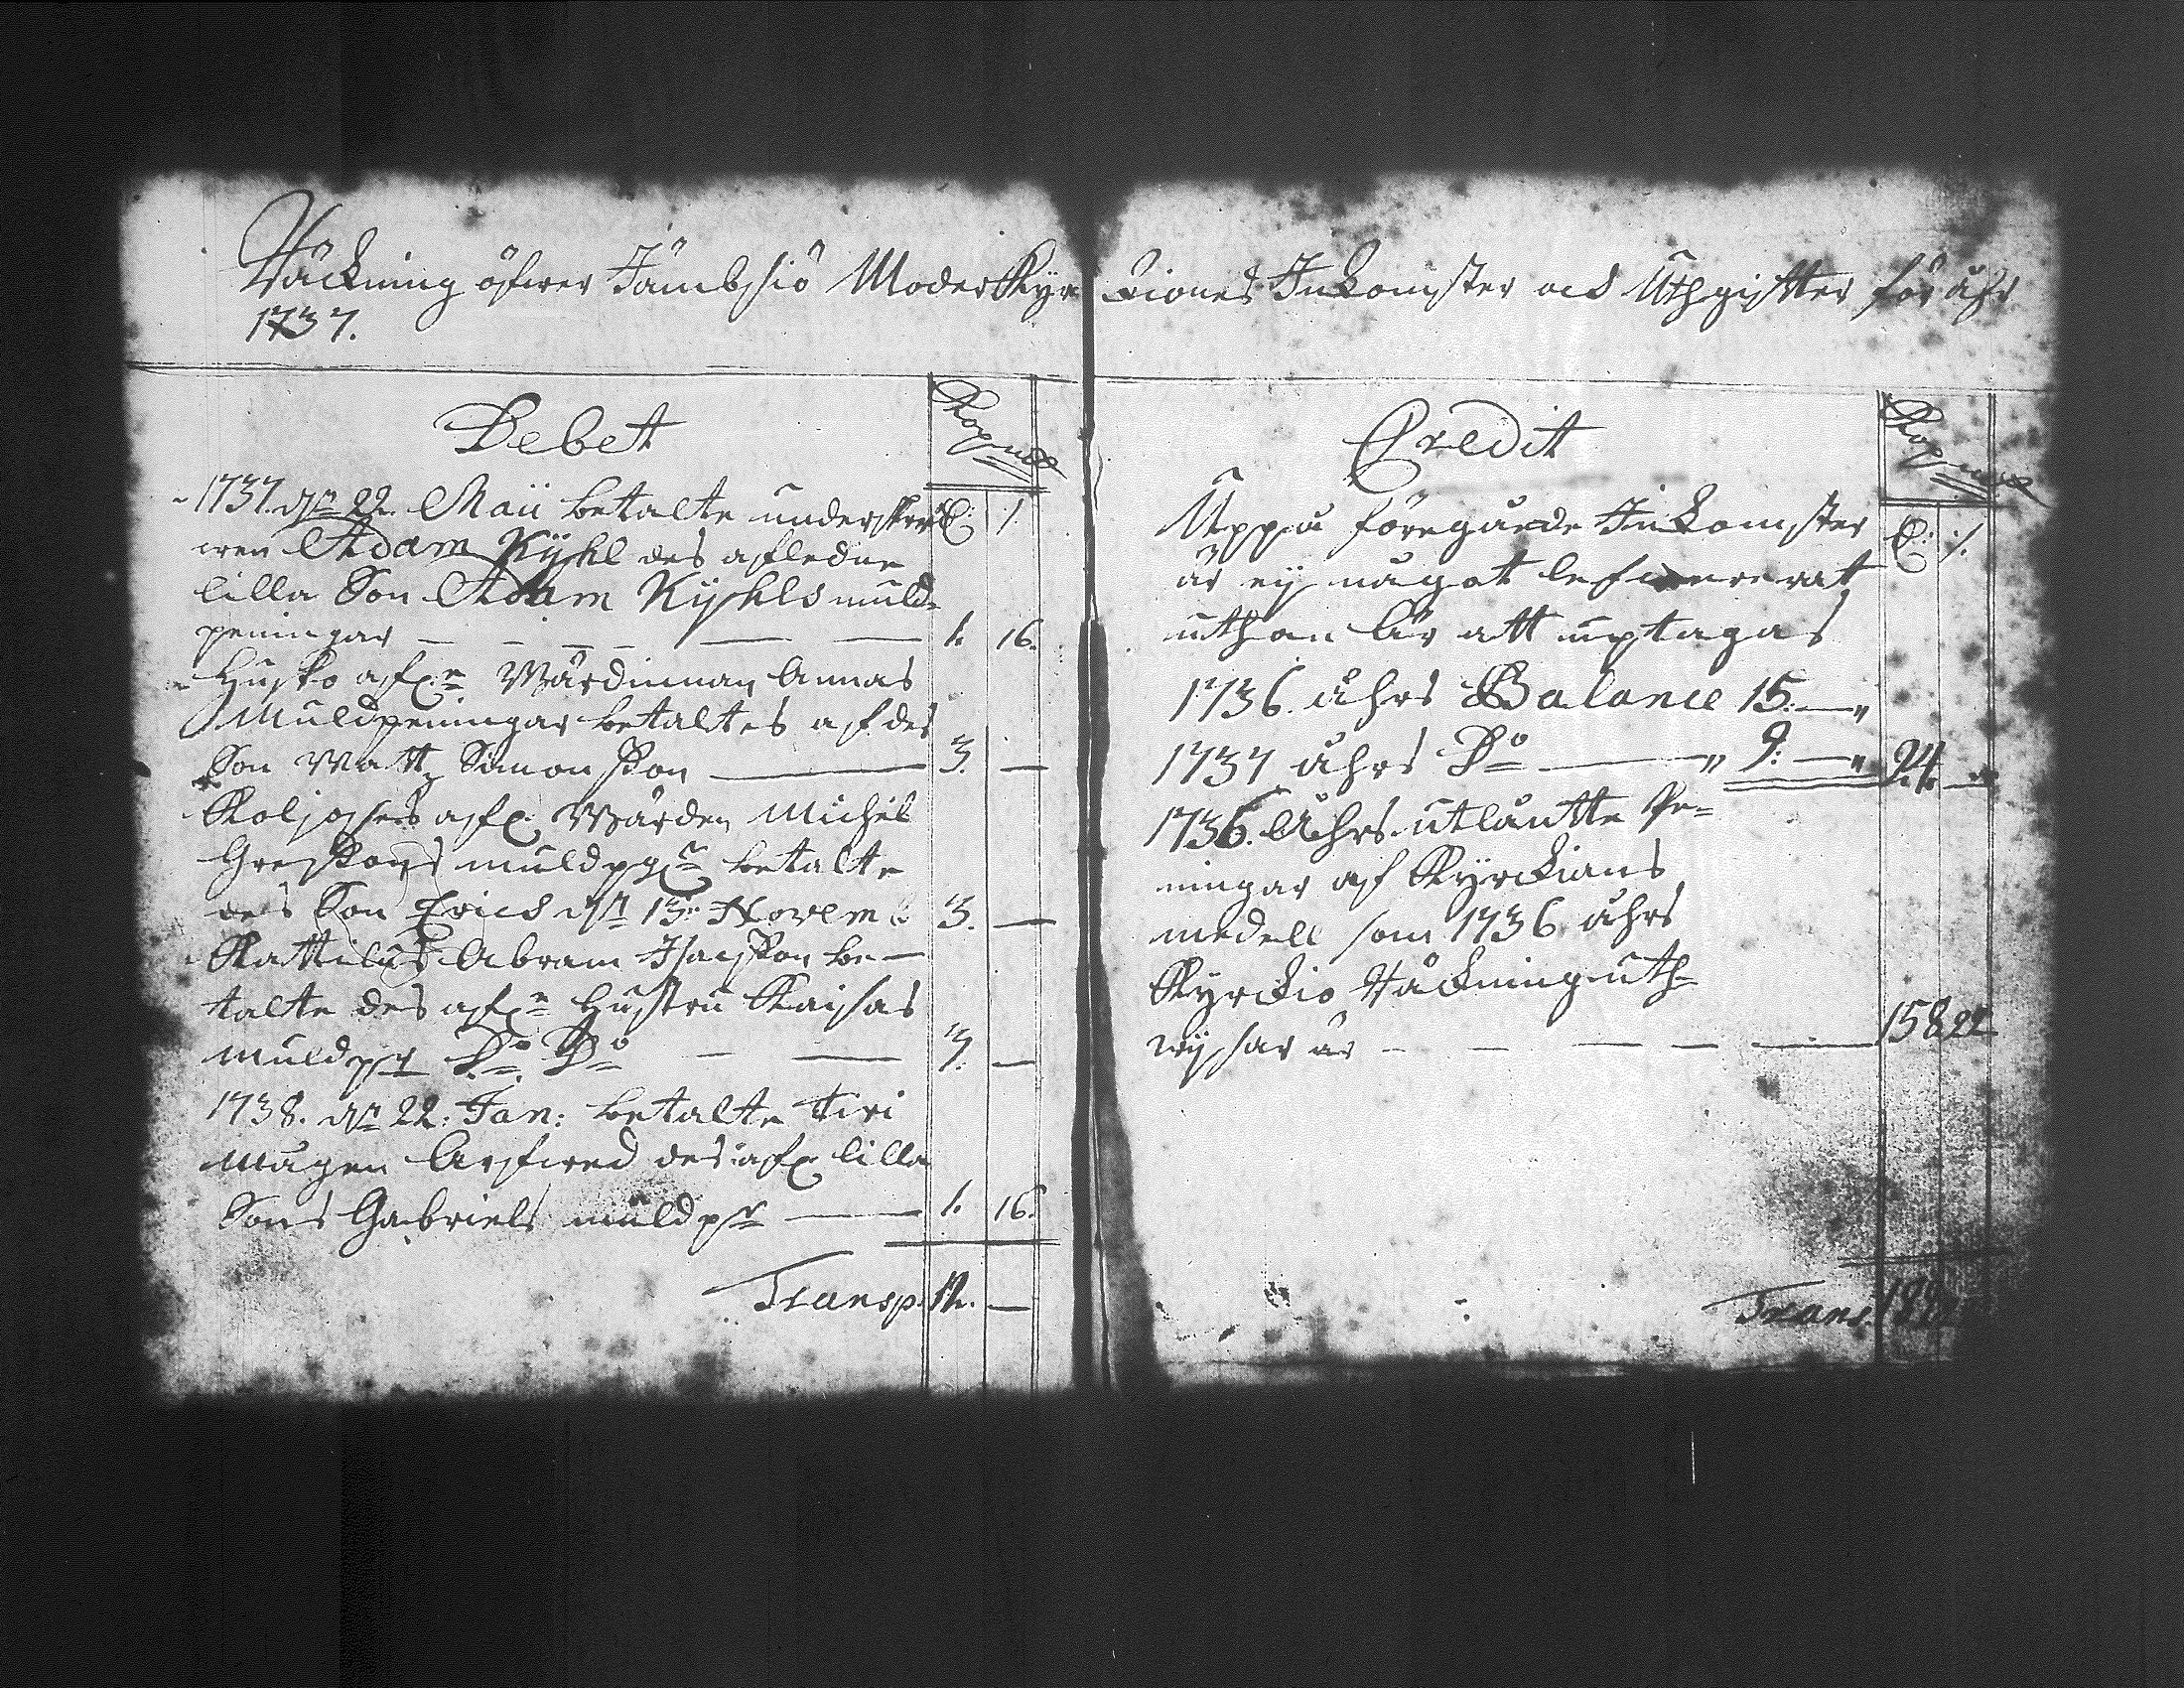 Räckning öfwer Jämbsiö Moder Kyrckiones Inkomster och Uthgiffter för åhr
1737.
Debet
Kop mt
1737. dn 22. Maii betalte underskref D: /.
wen Adam Kyhl des afledne
lilla Son Adam Kyhls muld-
peningar 1. 16.
Husko afl:ne Wärdinnan Annas
Muldpeningar betaltes af des
Son Matts Simonsson 3. —
Koljoses afl: Wärden Michel
Gresksons muldpgr betalte
des Son Erich dn 13: Novemb 3. —
Kattilus Abram Isacsson be-
talte des afl:ne Hustru Kaisas
muldpr Do Do 3. —
1738. dn 22. Jan: betalte
mågen des afl: lilla
Sons Gabriels muldpr 1. 16.
Transp. 12. —
Credit
Kop mt
Uppå föregående Inkomster D: /.
är ey något lefwererat
uthan lär att uptagas
1736 åhrs Balance 15. — "
1737 åhrs Do — " 9. — " 24. —
1736. Åhrs utlåntte Pe-
ningar af Kyrckians
medell som 1736 åhrs
Kyrckio Räckning uth-
wysar är 158 22
Trans.